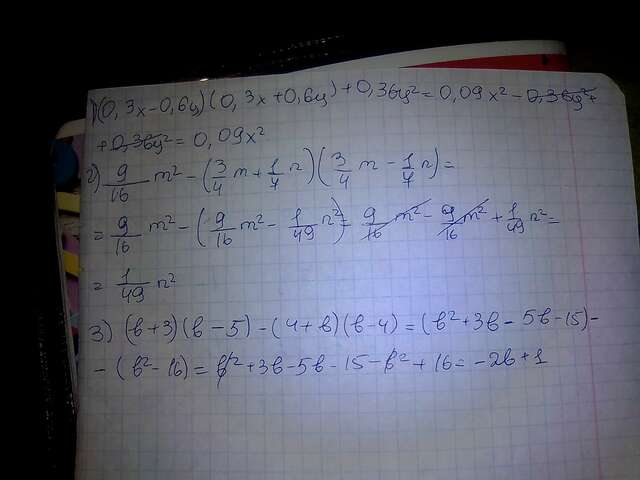 1) (0,3x-0,6y)(0,3x+0,6y)+0,36y²=0,09x²-0,36y²+
+0,36y²=0,09x²
2) 9/16 m²-(3/4 m+1/7 n)(3/4 m-1/7 n)=
=9/16 m²-(9/16 m²-1/49 n²)=9/16 m²-9/16 m²+1/49 n²=
=1/49 n²
3) (b+3)(b-5)-(4+b)(b-4)=(b²+3b-5b-15)-
-(b²-16)=b²+3b-5b-15-b²+16=-2b+1